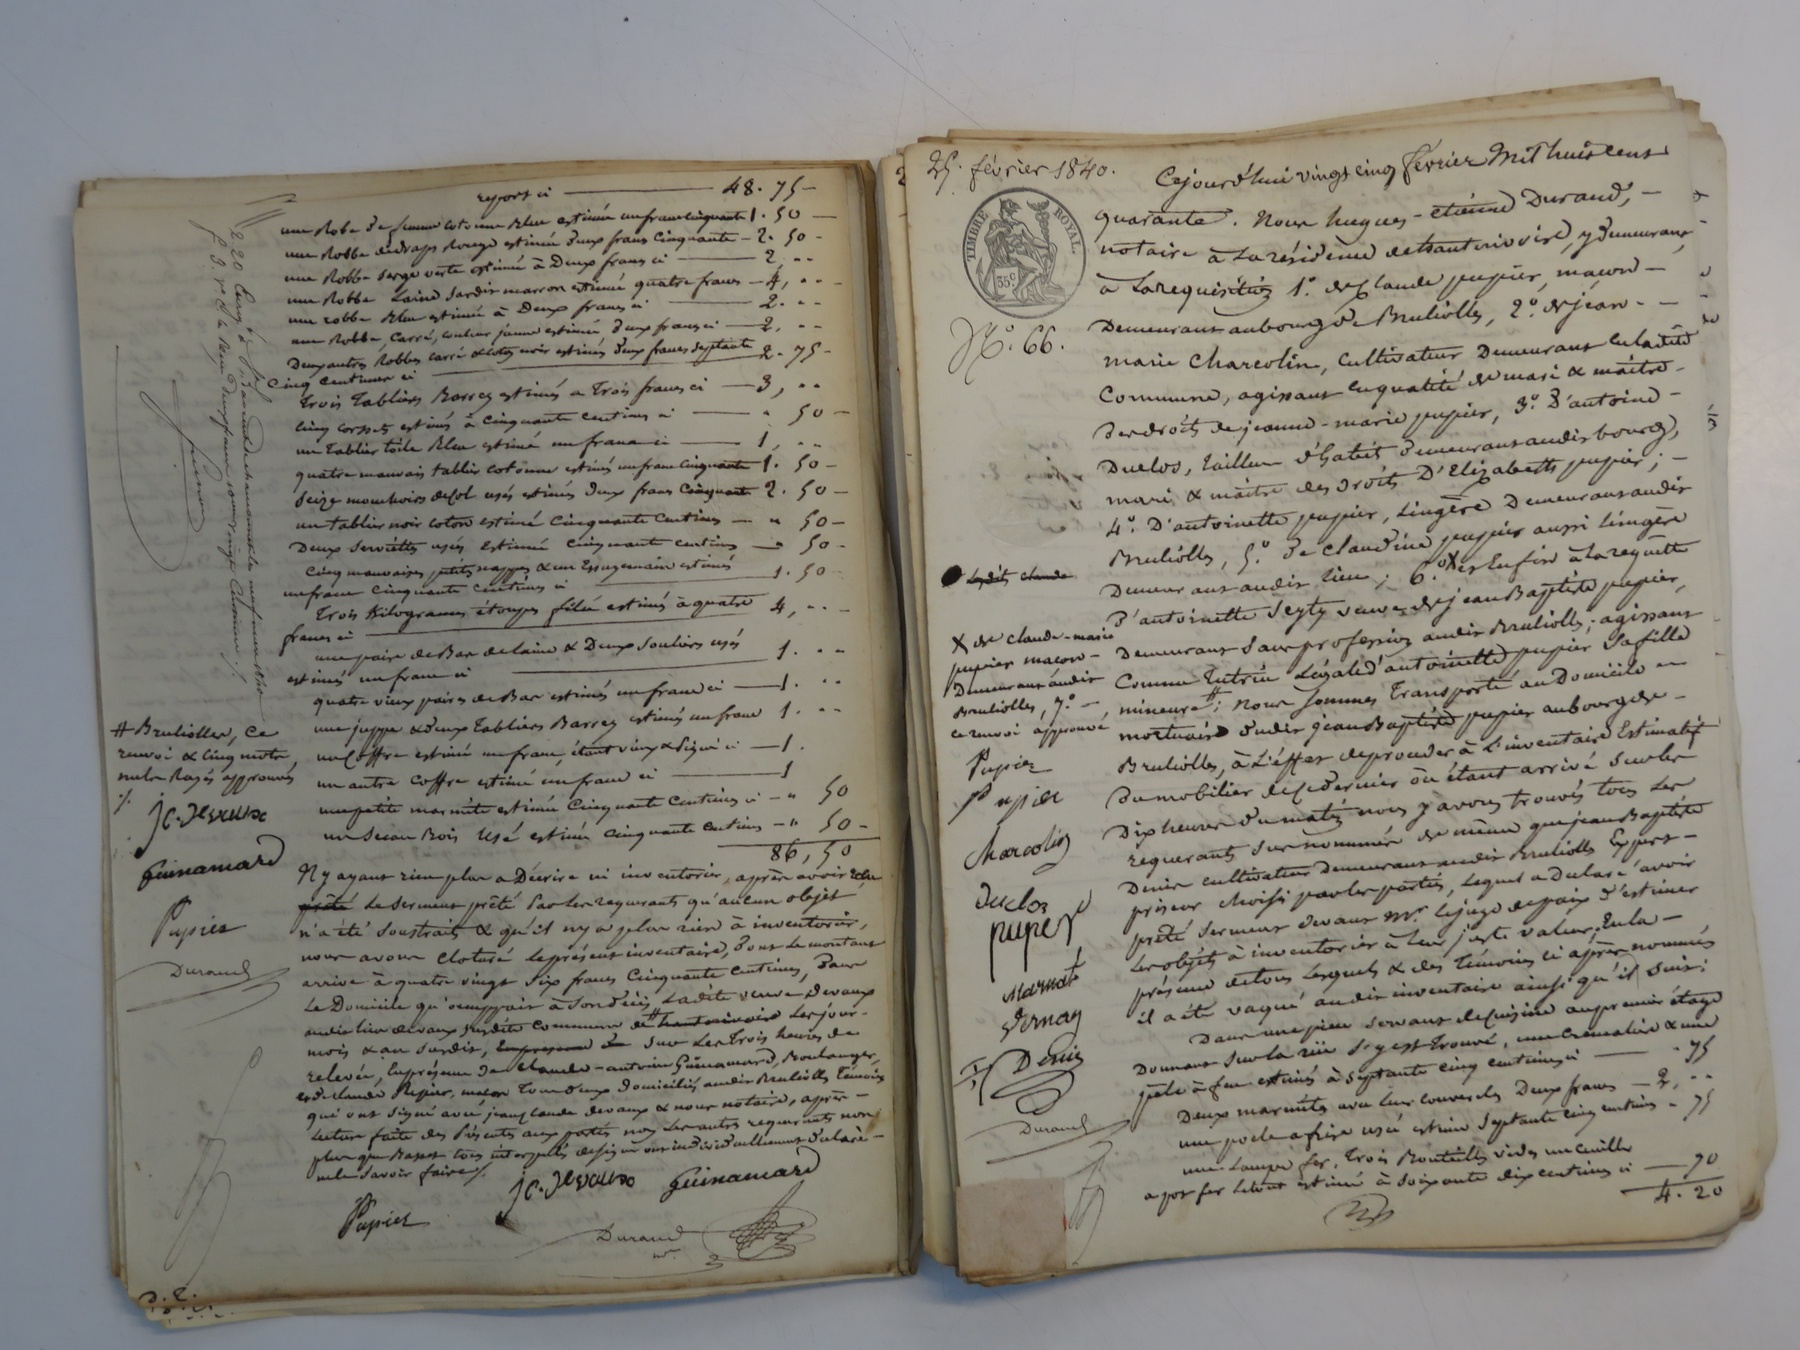 report ci 48. 75
une Robe de femme cotonne Bleu estimée un franc cinquante 1. 50
une Robbe de draps Rouge estimée deux francs cinquante 2. 50
une Robbe serge verte estimée à Deux francs ci 2, ..
une Robbe Laine Jardis marron estimée quatre francs 4, ..
une robbe Bleu estimée à Deux francs ci 2. ..
une Robbe, Carré, couleur jaune estimée deux francs ci 2, ..
Deux autres Robbes carré & coton noir estimés deux francs septante 2. 75
Cinq centimes ci
trois Tabliers Barrés estimés a Trois francs ci 3, ..
cinq corsets estimés à cinquante centimes ci " 50
un Tablier toile Bleu estimé un franc ci 1, ..
quatre mauvais tablier cotonne estimés un franc cinquante 1. 50
Seize mouchoirs de Col usés estimés deux francs cinquante 2. 50
un tablier noir coton estimé Cinquante Centimes " 50
Deux Serviettes usés Estimée cinquante centimes " 50
Cinq mauvaises petites nappes & un Essuyemain estimés
un franc cinquante centimes ci 1. 50
Trois Kilogrames étoupes filée estimés à quatre 4, ..
francs ci
une paire de Bas de laine & Deux souliers usés
estimés un franc ci 1. ..
quatre vieux paires de Bas estimés un franc ci 1. ..
une juppe & deux Tabliers Barrés estimés un franc 1. ..
un Coffre estimé un franc, étant vieux & ci 1.
un autre coffre estimé un franc ci 1
une petite marmite estimée Cinquante Centimes ci " 50
un Seau Bois Usé estimé cinquante centimes " 50
86, 50
N'y ayant rien plus a Décrire ni inventorier, après avoir
prêté Le Serment prêté Par Les requerants qu'aucun objet
n'a été soustrait & qu'il n'y a plus rien à inventorier,
nous avons cloturé le présent inventaire, dont Le montant
arrive à quatre vingt Six francs Cinquante centimes, Dans
Le Domicile qu'occuppait à son décès Ladite veuve Devaux
audit lieu devaux susdite commune de # hauterivoire Les jour
mois & an Susdit, Sur Les Trois heures de
relevée, En présence de Claude-antoine Guinamard, Boulanger,
et de Claude Papier, maçon Tous deux domiciliés audit Brulioles Témoins
qui ont signé avec jean claude devaux & nous notaire, après
Lecture faite des Présents aux parties non Les autres requerants non
plus que Basset tous interpellés de signer ont individuellement déclaré
ne le Savoir faire ./.
JC. Devaux Guinamard
Papier
Durand
# Brulioles, ce
renvoi & cinq mots
nuls Rayés approuvés
./.
JC. Devaux
Guinamard
Papier
Durand
25. février 1840.
TIMBRE ROYAL
35c
No. 66.
Cejourd'hui vingt cinq février Mil huit cent
quarante. Nous hugues-etienne Durand,
notaire à La résidence de hauterivoire, y demeurant,
a La requisition 1o. de Claude papier, maçon
Demeurant au bourg de Brulioles, 2o. de jean
marie Charcolin, cultivateur Demeurant en Ladite
Commune, agissant en qualité de mari & maitre
des droits de jeanne-marie papier, 3o. d'antoine
Duclos, tailleur d'habits demeurant audit bourg,
mari & maitre des droits D'Elizabeth papier;
4o. D'antoinette papier, Lingère Demeurant audit
Brulioles, 5o. de Claudine papier aussi Lingère
Demeurant audit lieu; 6o. X et Enfin à La requête
d'antoinette Seyty veuve de jean Baptiste papier,
Demeurant Sans profession audit Brulioles; agissant
Comme Tutrice Légale d'antoinette papier Sa fille
mineure; nous Sommes Transporté au Domicile
mortuaire dudit jean Baptiste papier au bourg de
Brulioles, à L'effet de proceder à L'inventaire Estimatif
Du mobilier de ce dernier où étant arrivé Sur les
Dix heures du matin nous y avons trouvés tous Les
requerants Sus nommés de même que jean Baptiste
Denis cultivateur Demeurant audit Brulioles Expert
priseur choisi par les parties, lequel a Déclaré avoir
prêté serment devant Mr. le juge de paix d'estimer
Les objets à inventorier à leur juste valeur, En la
présence de tous Lesquels & des Témoins ci après nommés
il a été vaqué audit inventaire ainsi qu'il suit:
Dans une piece servant de cuisine au premier étage
Donnant sur la rüe s'y est trouvé, une crémaliere & une
pêle à feu estimés à Septante cinq centimes ci . 75
Deux marmites avec leur couvercles Deux francs 2, ..
une poele a frire usée estimée septante cinq centimes " 75
une Lampe fer, trois Bouteilles vides une cuiller
a pot fer Letout estimé à Soixante dix centimes ci 70
4. 20
Lesdits claude
X de claude-marie
papier maçon
Demeurant audit
Brulioles, 7o.
ce renvoi approuvé
Papier
Papier
Charcolin
Duclos
papier
Marnat
Vernay
Denis
Durand